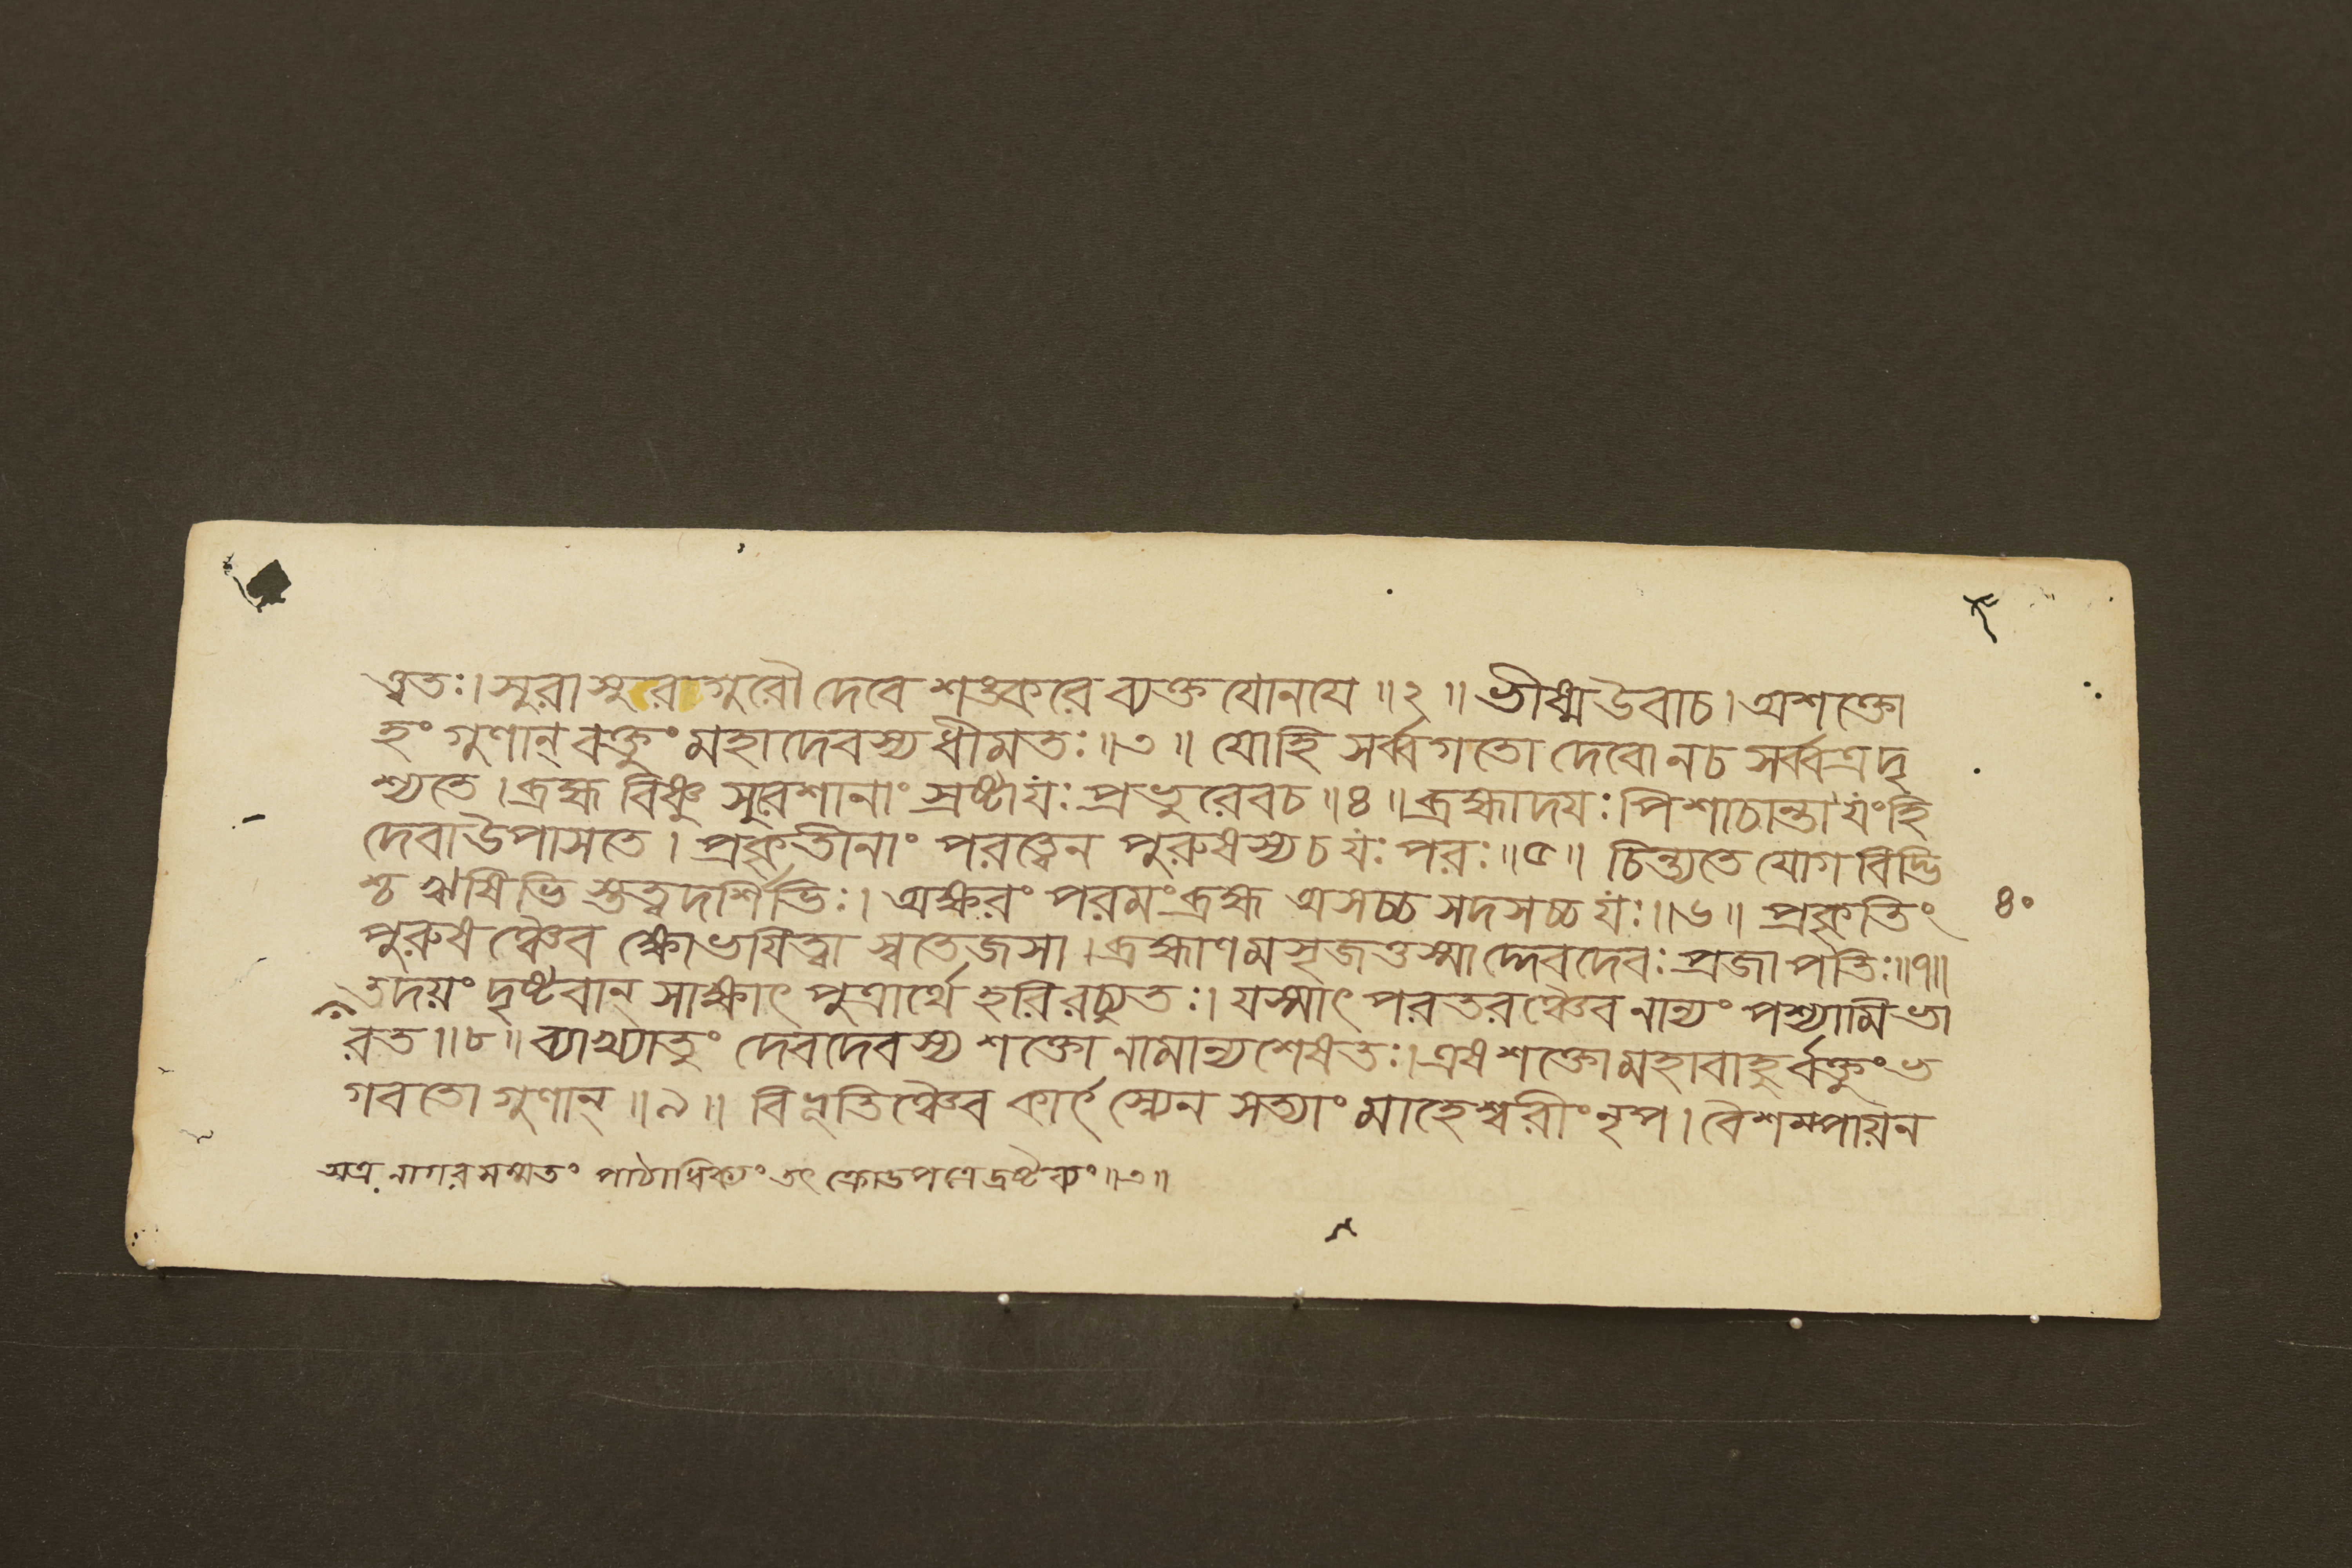 ত্ত্বতঃ। সুরাসুরগুরৌ দেবে শঙ্করে ব্যক্ত যোনযে ॥২॥ ভীষ্ম উবাচ। অশক্তো
হং গুণান্ বক্তুং মহাদেবস্য ধীমতঃ॥৩॥ যোহি সর্ব্বগতো দেবো নচ সর্ব্বত্র দৃ
শ্যতে। ব্রহ্ম বিষ্ণু সুরশানাং স্রষ্টা যঃ প্রভুরেবচ॥৪॥ ব্রহ্মাদযঃ পিশাচান্তা যংহি
দেবা উপাসতে। প্রকৃতীনাং পরত্বেন পুরুষস্য চ যঃ পরঃ॥৫॥ চিন্ত্যতে যোগ বিদ্ভি
শ্চ ঋষিভি স্তত্ত্বদর্শিভিঃ। অক্ষরং পরমং ব্রহ্ম অসচ্চ সদসচ্চ যঃ॥৬॥ প্রকৃতিং
৪০
পুরুষঞ্চৈব ক্ষোভযিত্বা স্বতেজসা। ব্রহ্মাণমসৃজত্তস্মাদ্দেবদেবঃ প্রজাপতিঃ॥৭॥
তদয়ং দৃষ্টবান্ সাক্ষাৎ পুত্রার্থে হরিরচ্যুতঃ। যস্মাৎ পরতরঞ্চৈব নান্যং পশ্যামি ভা
রত॥৮॥ ব্যাখ্যাতুং দেবদেবস্য শক্তো নামান্যশেষতঃ। এষ শক্তো মহাবাহুর্বক্তুং ভ
গবতো গুণান্॥৯॥ বিভূতিঞ্চৈব কার্ৎস্ন্যেন সত্যাং মাহেশ্বরীং নৃপ। বৈশম্পায়ন
অত্র নাগরসম্মতং পাঠাধিক্যং তৎ ক্রোডপত্রে দ্রষ্টব্যং॥৩॥